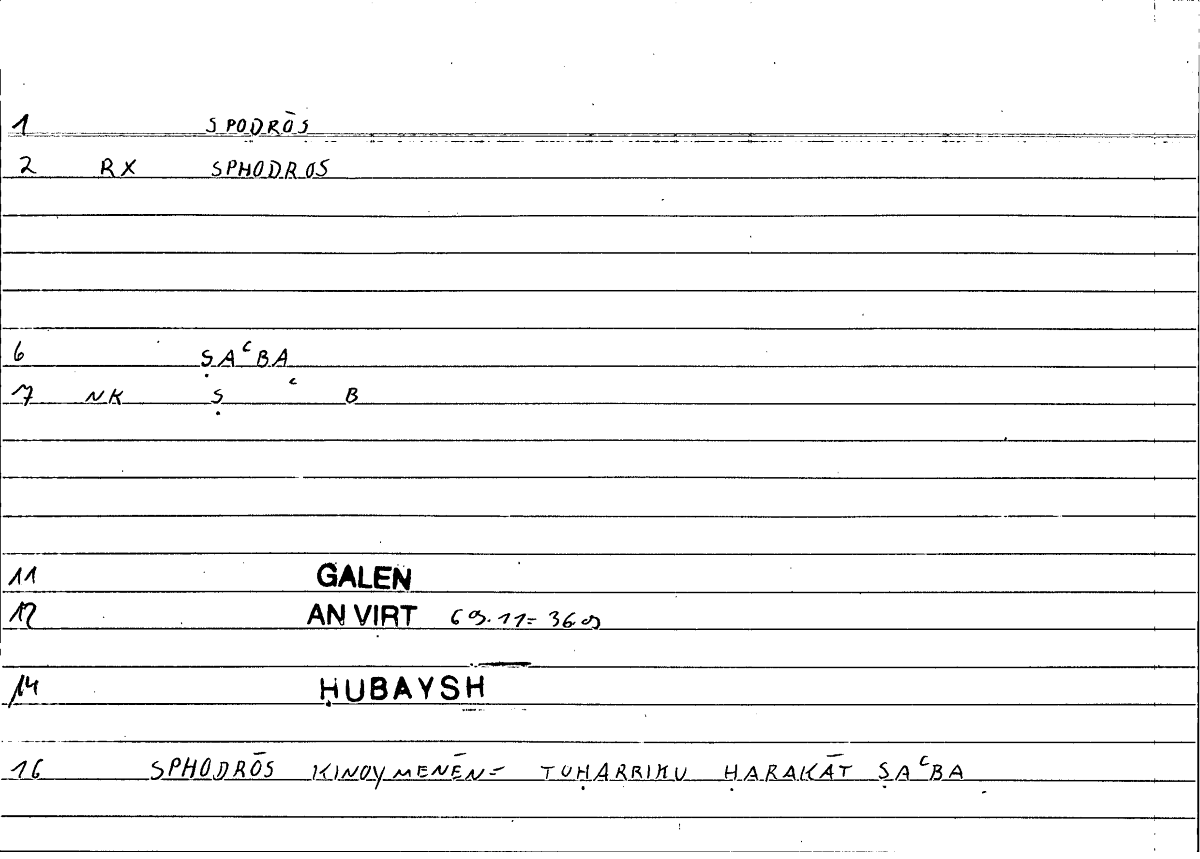 1 SPODRŌS
2 RX SPHODROS
6 ṢAʿBA
7 NK Ṣ ʿ B
11 GALEN
12 AN VIRT 69.11= 36.9
14 ḤUBAYSH
16 SPHODRŌS KINOYMENĒN= TUḤARRIKU ḤARAKĀT ṢAʿBA